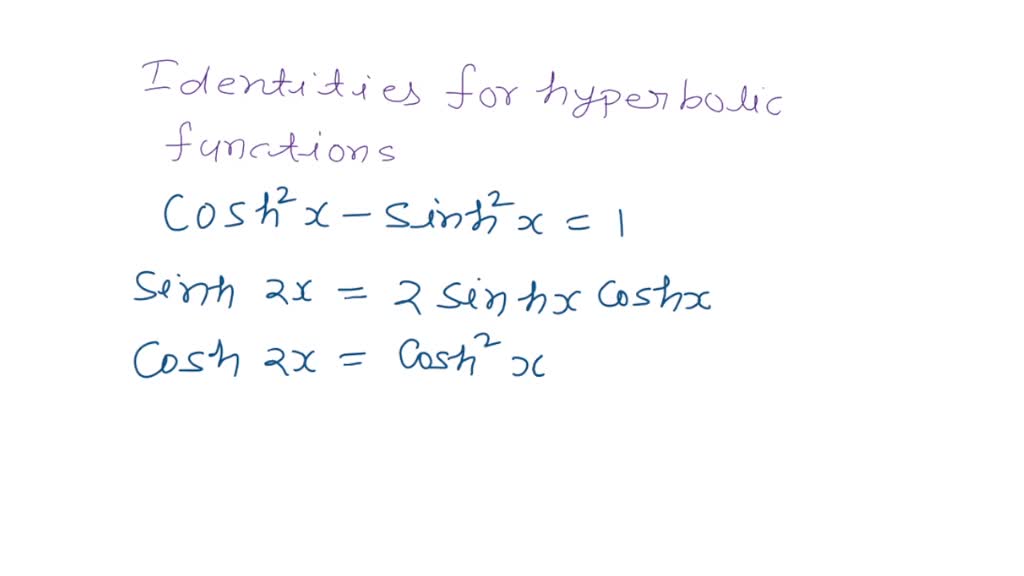 Identities for hyperbolic
functions
Cosh²x - Sinh²x = 1
Sinh 2x = 2 Sinhx Coshx
Cosh 2x = Cosh²x